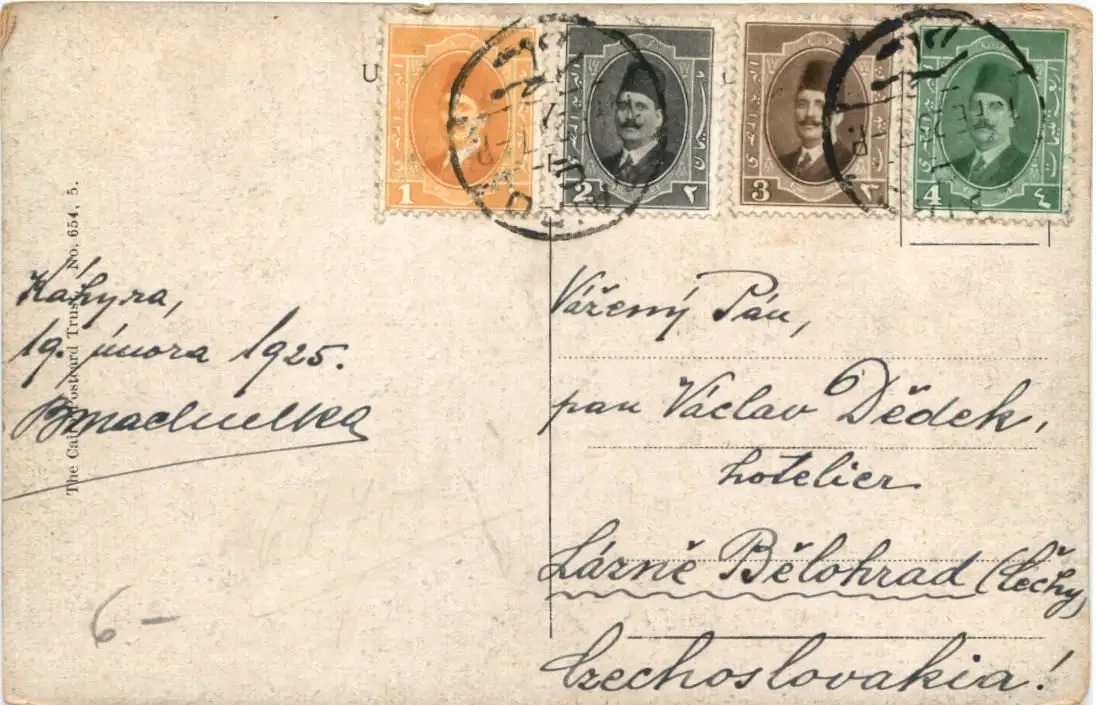 1
2 ٢
3 ٣
4 ٤
Káhyra,
19. února 1925.
The Cairo Postcard Trust No. 654, 5.
Vážený Pán,
pan Václav Dědek,
hotelier
Lázně Bělohrad (Čechy)
Czechoslovakia!
6 —